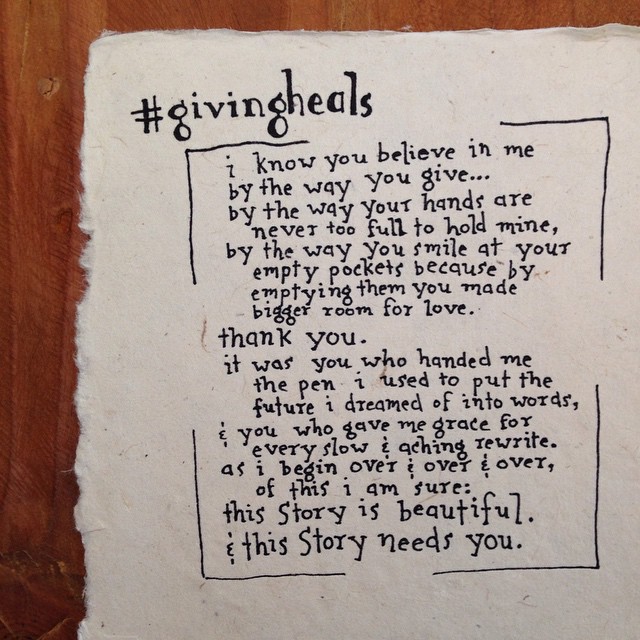 #givingheals
i know you believe in me
by the way you give...
by the way your hands are
never too full to hold mine,
by the way you smile at your
empty pockets because by
emptying them you made
bigger room for love.
thank you.
it was you who handed me
the pen i used to put the
future i dreamed of into words,
& you who gave me grace for
every slow & aching rewrite.
as i begin over & over & over,
of this i am sure:
this Story is beautiful.
& this Story needs you.